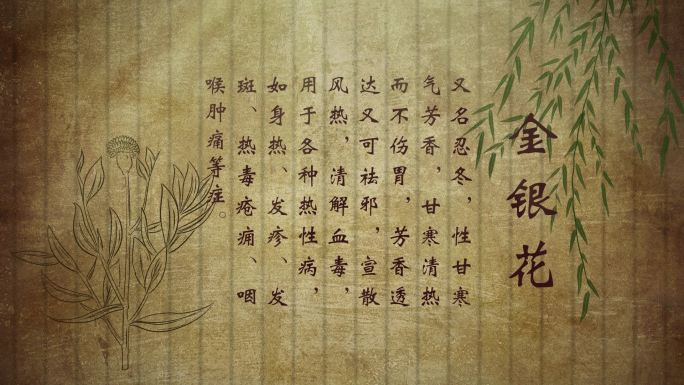 金银花
又名忍冬，性甘寒
气芳香，甘寒清热
而不伤胃，芳香透
达又可祛邪，宣散
风热，清解血毒，
用于各种热性病，
如身热、发疹、发
斑、热毒疮痈、咽
喉肿痛等症。